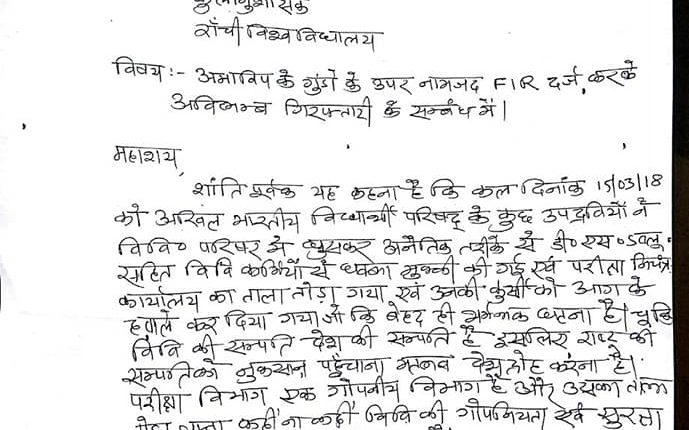 कुलानुशासक
राँची विश्वविद्यालय
विषय:- अभाविप के गुंडो के उपर नामजद FIR दर्ज करके
अविलम्ब गिरफ्तारी के सम्बंध में।
महाशय,
शांति पूर्वक यह कहना है कि कल दिनांक 15/03/18
को अखिल भारतीय विद्यार्थी परिषद् के कुछ उपद्रवियों ने
वि०वि० परिसर में घुसकर अनैतिक तरीके से डी० एस० SW
सहित विवि कर्मियों से धक्का मुक्की की गई एवं परीक्षा नियंत्र
कार्यालय का ताला तोड़ा गया एवं उनकी कुर्सी को आग के
हवाले कर दिया गया जो कि बेहद ही शर्मनाक घटना है। चूकि
विवि की सम्पति देश की सम्पति है इसलिए राष्ट्र की
सम्पति को नुकसान पहुँचाना मतलब देशद्रोह करना है।
परीक्षा विभाग एक गोपनीय विभाग है और उसका ताला
जाना कहीं ना कहीं विवि की गोपनियता एवं सुरक्षा